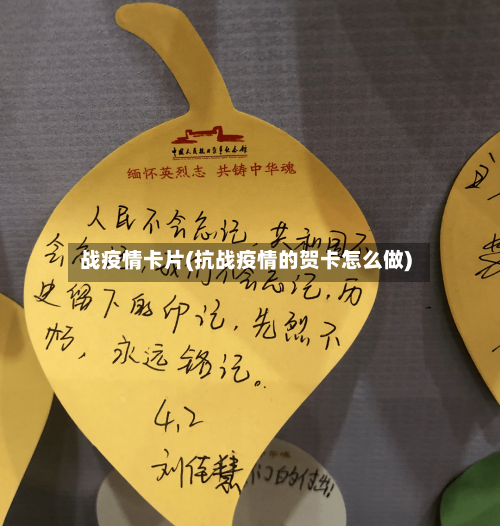 中国人民抗日战争纪念馆
缅怀英烈志 共铸中华魂
人民不会忘记，共和国不
会忘记，我们不会忘记，历
战疫情卡片(抗战疫情的贺卡怎么做)
史留下的印记，先烈不
朽，永远铭记。
4.2
刘佳慧
们的付出!